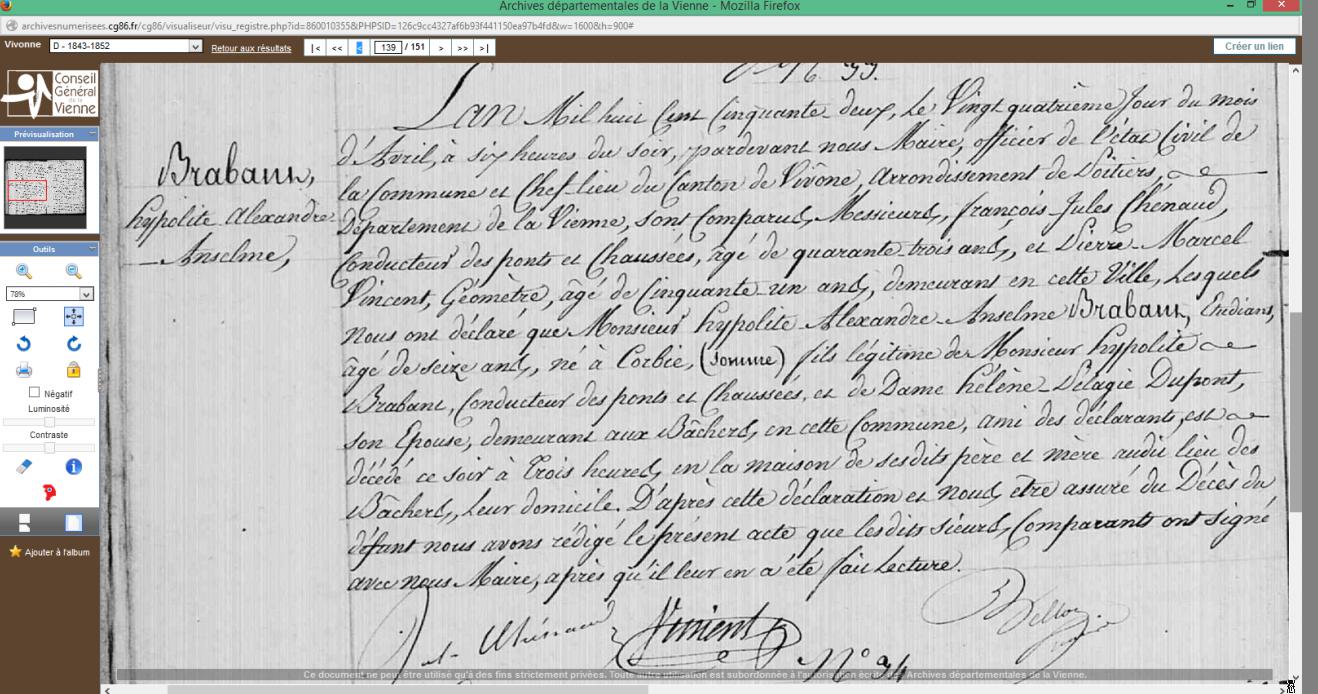 Archives départementales de la Vienne - Mozilla Firefox
archivesnumerisees.cg86.fr/cg86/visualiseur/visu_registre.php?id=860010355&PHPSID=126c9cc4327af6b93f441150ea97b4fd&w=1600&h=900#
Vivonne
D - 1843-1852
Retour aux résultats
|<
<<
<
139
/ 151
>
>>
>|
Créer un lien
Conseil
Général
de la
Vienne
Prévisualisation
Outils
78%
Négatif
Luminosité
Contraste
Ajouter à l'album
Brabant,
hypolite Alexandre
Anselme,
L'an Mil huit Cent Cinquante deux, Le Vingt quatrième Jour du mois
d'Avril, à six heures du soir, pardevant nous Maire, officier de l'état Civil de
la Commune et Chef-lieu du Canton de Vivône, Arrondissement de Poitiers,
Département de la Vienne, sont Comparus, Messieurs, françois-Jules Chénaud,
Conducteur des ponts et Chaussées, âgé de quarante-trois ans, et Pierre-Marcel
Vincent, Géomètre, âgé de Cinquante-un ans, demeurant en cette Ville, Lesquels
nous ont déclaré que Monsieur hypolite-Alexandre-Anselme Brabant, Etudiant,
âgé de seize ans, né à Corbie, (somme) fils légitime de Monsieur hypolite
Brabant, Conducteur des ponts et Chaussées, et de Dame hélène-Pélagie Dupont,
son Epouse, demeurant aux Bâchers, en cette Commune, ami des déclarants, est
décédé ce soir à Trois heures, en la maison de sesdits père et mère audit lieu des
Bâchers, Leur domicile. D'après cette déclaration et Nous, être assuré du Décès du
défunt nous avons rédigé le présent acte que lesdits sieurs, Comparants ont signé
avec nous Maire, après qu'il leur en a été fait Lecture.
Vincent
N° 94
Ce document ne peut être utilisé qu'à des fins strictement privées. Toute autre utilisation est subordonnée à l'autorisation écrite des Archives départementales de la Vienne.